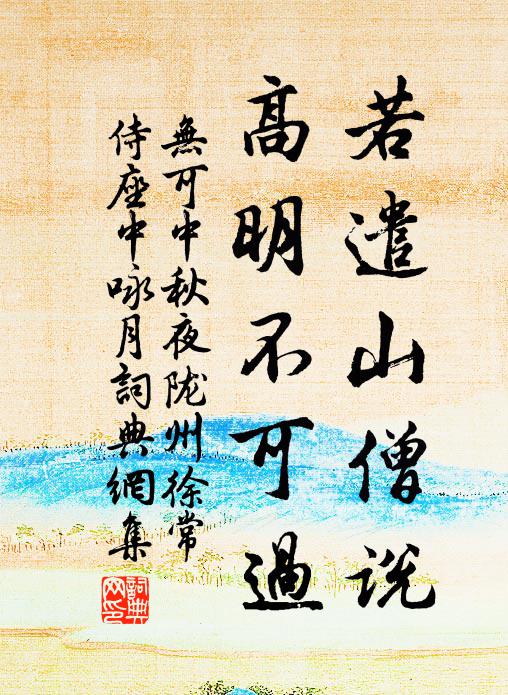 若遣山僧说
高明不可過
無可中秋夜陇州徐常
侍座中咏月詞典網集
詞典
网印